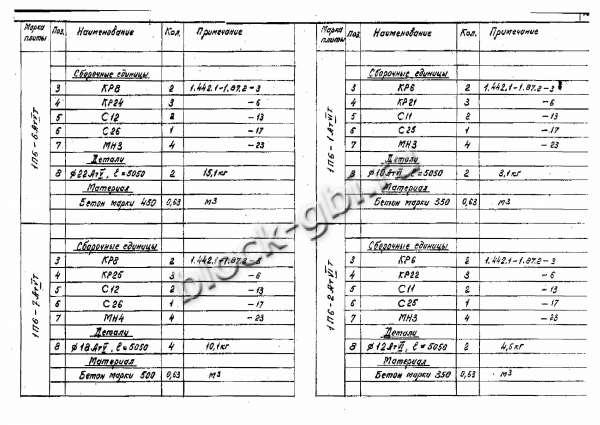 Марка плиты Поз. Наименование Кол. Примечание
Сборочные единицы
1П6-6АтVIТ
3 КР8 2 1.442.1-1.87.2-3
4 КР24 3 -6
5 С12 2 -13
6 С26 1 -17
7 МН3 4 -23
Детали
8 Ф22АтVI, ℓ=5050 2 15,1кг
Материал
Бетон марки 450 0,63 м3
Сборочные единицы
1П6-7АтVIТ
3 КР8 2 1.442.1-1.87.2-3
4 КР25 3 -6
5 С12 2 -13
6 С26 1 -17
7 МН4 4 -23
Детали
8 Ф18АтVI, ℓ=5050 4 10,1кг
Материал
Бетон марки 500 0,63 м3
Марка плиты Поз. Наименование Кол. Примечание
Сборочные единицы
1П6-1АтVIТ
3 КР6 2 1.442.1-1.87.2-3
4 КР21 3 -6
5 С11 2 -13
6 С25 1 -17
7 МН3 4 -23
Детали
8 Ф10АтVI, ℓ=5050 2 3,1кг
Материал
Бетон марки 350 0,63 м3
Сборочные единицы
1П6-2АтVIТ
3 КР6 2 1.442.1-1.87.2-3
4 КР22 3 -6
5 С11 2 -13
6 С25 1 -17
7 МН3 4 -23
Детали
8 Ф12АтVI, ℓ=5050 2 4,5кг
Материал
Бетон марки 350 0,63 м3
block-gbi.ru